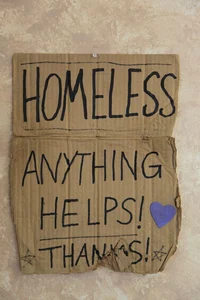 HOMELESS
ANYTHING
HELPS!
THANKS!